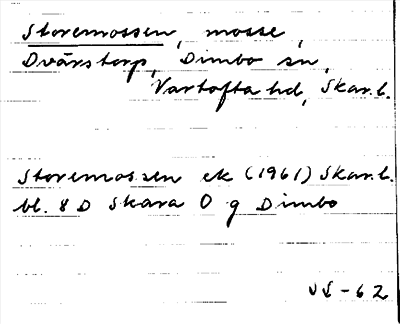 Storemossen, mosse,
Dvärstorp, Dimbo sn,
Vartofta hd, Skar. l.
Storemossen ek (1961) Skar. l.
bl. 8 D Skara O g Dimbo
VS-62